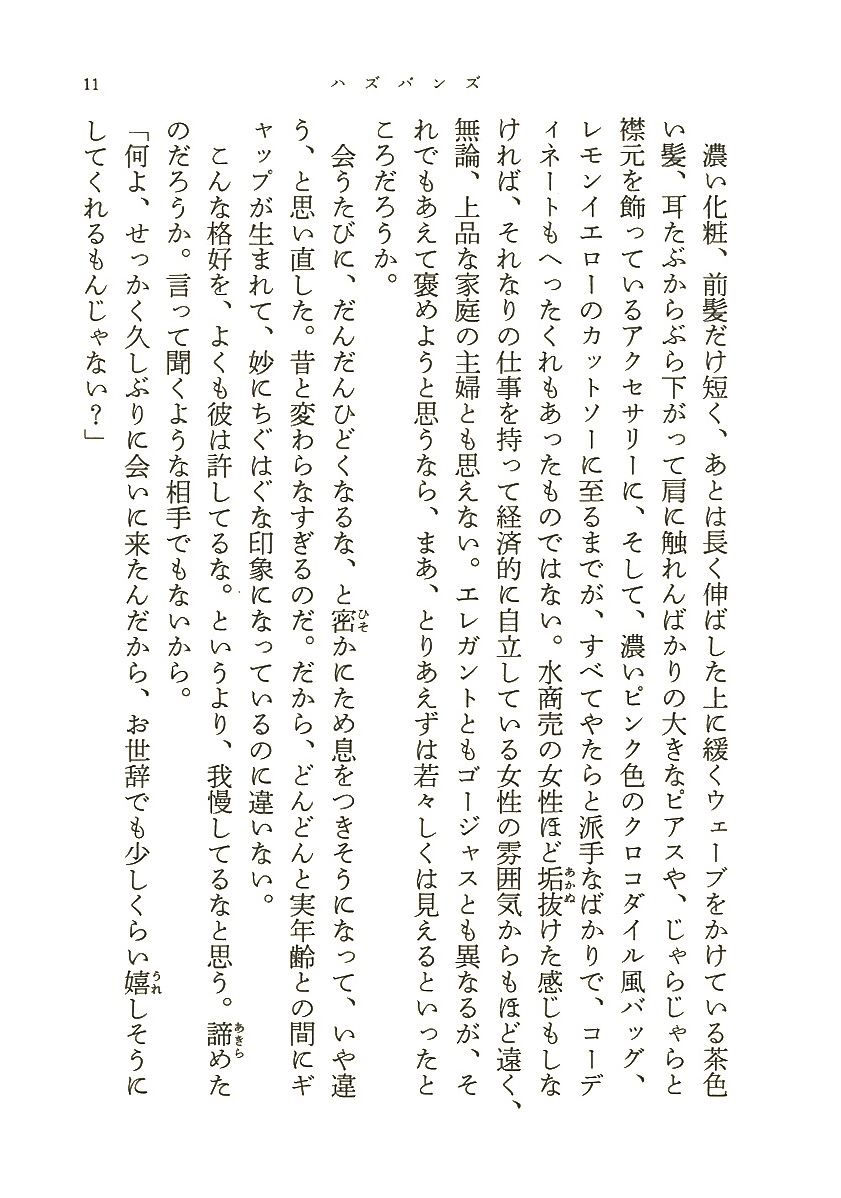 11
ハズバンズ
　濃い化粧、前髪だけ短く、あとは長く伸ばした上に緩くウェーブをかけている茶色
い髪、耳たぶからぶら下がって肩に触れんばかりの大きなピアスや、じゃらじゃらと
襟元を飾っているアクセサリーに、そして、濃いピンク色のクロコダイル風バッグ、
レモンイエローのカットソーに至るまでが、すべてやたらと派手なばかりで、コーデ
ィネートもへったくれもあったものではない。水商売の女性ほど垢抜けた感じもしな
ければ、それなりの仕事を持って経済的に自立している女性の雰囲気からもほど遠く、
無論、上品な家庭の主婦とも思えない。エレガントともゴージャスとも異なるが、そ
れでもあえて褒めようと思うなら、まあ、とりあえずは若々しくは見えるといったと
ころだろうか。
　会うたびに、だんだんひどくなるな、と密かにため息をつきそうになって、いや違
う、と思い直した。昔と変わらなすぎるのだ。だから、どんどんと実年齢との間にギ
ャップが生まれて、妙にちぐはぐな印象になっているのに違いない。
　こんな格好を、よくも彼は許してるな。というより、我慢してるなと思う。諦めた
のだろうか。言って聞くような相手でもないから。
「何よ、せっかく久しぶりに会いに来たんだから、お世辞でも少しくらい嬉しそうに
してくれるもんじゃない？」